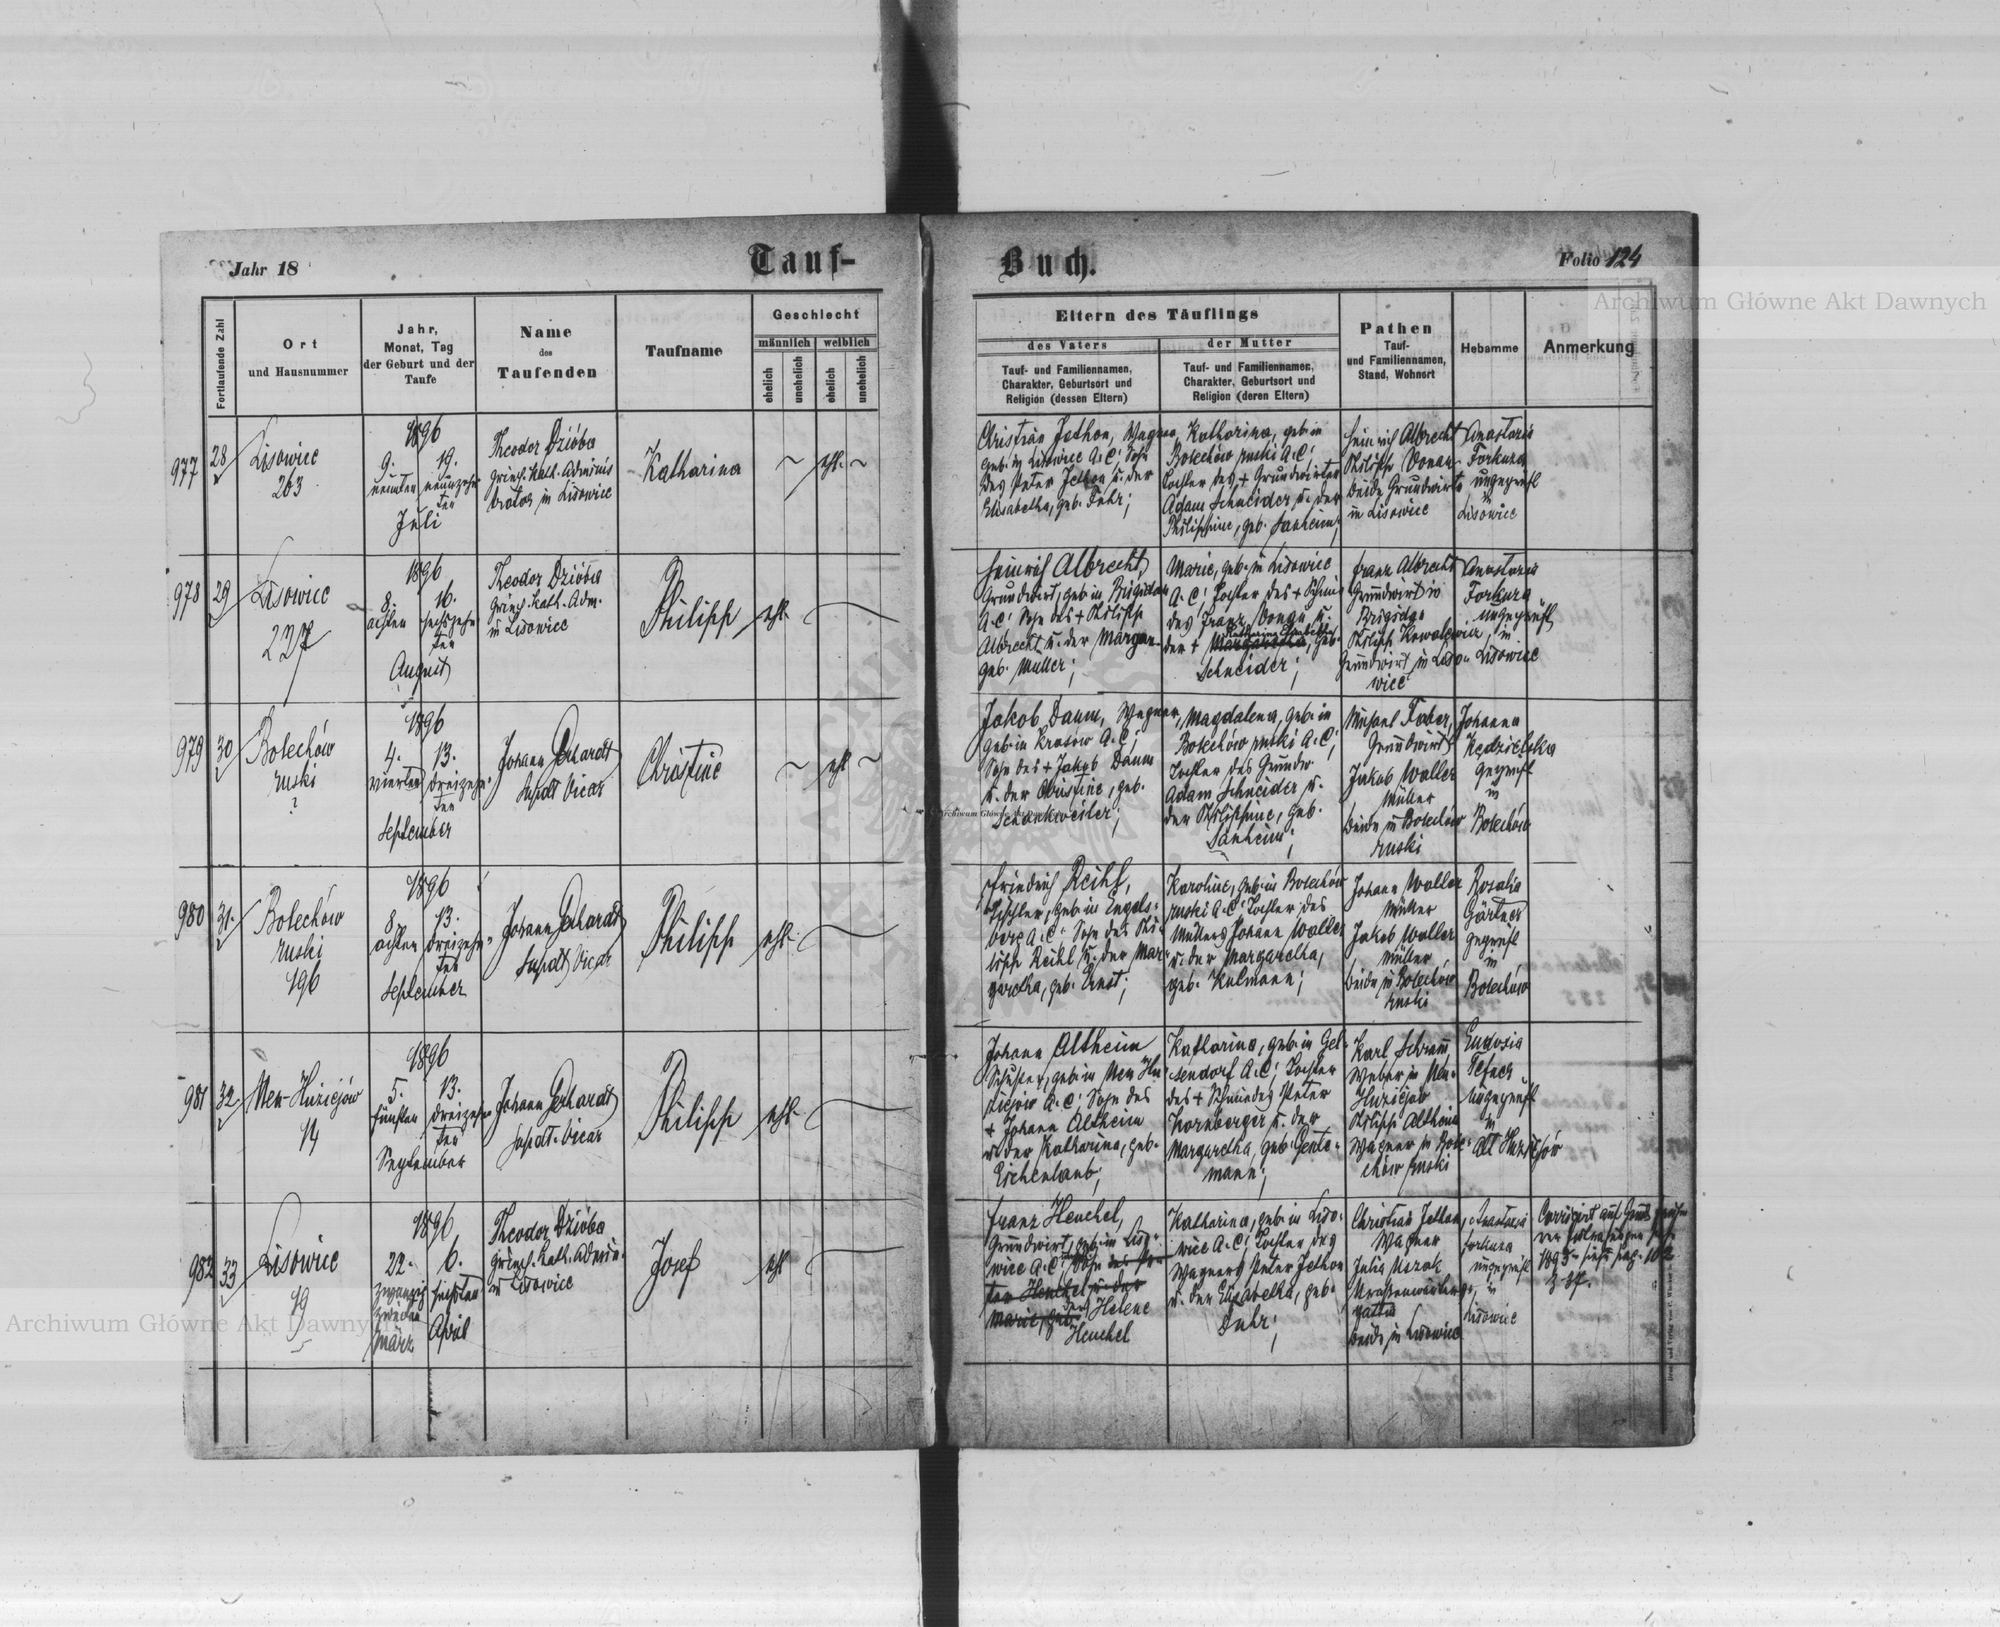 Jahr 18
Tauf-
Buch.
Folio 124
Archiwum Główne Akt Dawnych
Fortlaufende Zahl
Ort
und Hausnummer
Jahr,
Monat, Tag
der Geburt und der
Taufe
Name
des
Taufenden
Taufname
Geschlecht
männlich
weiblich
ehelich
unehelich
ehelich
unehelich
Eltern des Täuflings
des Vaters
Tauf- und Familiennamen,
Charakter, Geburtsort und
Religion (dessen Eltern)
der Mutter
Tauf- und Familiennamen,
Charakter, Geburtsort und
Religion (deren Eltern)
Pathen
Tauf-
und Familiennamen,
Stand, Wohnort
Hebamme
Anmerkung
977
28
Lisowice
203
1896
9. 19.
neunten neunzehn
ten
Juli
Theodor Dzióba
griech. kath. Adminis
trator in Lisowice
Katharina
ehl.
Christian Jethon, Wagner,
geb. in Lisowice A.C; Sohn
des Peter Jethon u. der
Elisabetha, geb. Fuhr;
Katharina, geb. in
Bolechów ruski A.C;
Tochter des + Grundwirten
Adam Schneider u. der
Philippine, geb. Sanheim;
Heinrich Albrecht
Philipp Vonau
beide Grundwirte
in Lisowice
Anastasia
Forkuza
ungeprüft
in
Lisowice
978
29
Lisowice
227
1896
8. 16.
achten sechszehn
ten
August
Theodor Dzióba
griech. kath. Adm.
in Lisowice
Philipp
ehl.
Heinrich Albrecht,
Grundwirt, geb. in Brigidau
A.C; Sohn des + Philipp
Albrecht u. der Margar.
geb. Müller;
Marie, geb. in Lisowice
A.C; Tochter des +
des Franz Vonau u.
der + Margaretha, geb.
Schneider;
Franz Albrecht
Grundwirt in
Brigidau
Philipp
Grundwirt in Liso-
wice
Anastasia
Forkuza
ungeprüft
in
Lisowice
979
30
Bolechów
ruski
?
1896
4. 13.
vierten dreizehn-
ten
September
Johann Gerhardt
Supdt. Vicar
Christine
ehl.
Jakob Daum, Wagner,
geb. in Krasow A.C;
Sohn des + Jakob Daum
u. der Christine, geb.
Schankweiler;
Magdalena, geb. in
Bolechów ruski A.C;
Tochter des Grundw.
Adam Schneider u.
der Philippine, geb.
Sanheim;
Michael Faber,
Grundwirt
Jakob Waller
Müller
beide in Bolechów
ruski
Johanna
Kędzielska
geprüft
in
Bolechów
980
31.
Bolechów
ruski
196
1896
8. 13.
achten dreizehn-
ten
September
Johann Gerhardt
Supdt. Vicar
Philipp
ehl.
Friedrich Reihl,
Tischler, geb. in Engels-
berg A.C; Sohn des Phi-
lipp Reihl u. der Mar-
garetha, geb. Ernst;
Karoline, geb. in Bolechów
ruski A.C; Tochter des
Müllers Johann Waller
u. der Margaretha,
geb. Kulmann;
Johann Waller
Müller
Jakob Waller
Müller
beide in Bolechów
ruski
Rosalia
Gärtner
geprüft
in
Bolechów
981
32
Neu-Huziejów
14
1896
5. 13.
fünften dreizehn-
ten
September
Johann Gerhardt
Supdt. Vicar
Philipp
ehl.
Johann Altheim
Schuster, geb. in Neu Hu-
ziejow A.C; Sohn des
+ Johann Altheim
u. der Katharina, geb.
Eichenlaub;
Katharina, geb. in Gel-
sendorf A.C; Tochter
des + Schmiedes Peter
Kornberger u. der
Margaretha, geb. Gente-
mann;
Karl Schramm
Weber in Neu-
Huziejow
Philipp Altheim
Wagner in Bole-
chów ruski
Eudoxia
ungeprüft
in
Alt Huziejów
982
33
Lisowice
19
1896
22. 6.
zwanzig sechsten
zweiten
März April
Theodor Dzióba
griech. kath. Admin.
in Lisowice
Josef
ehl.
Franz Heuchel,
Grundwirt, geb. in Liso-
wice A.C; Sohn des Pe-
ter Heuchel u. der
Marie, geb.
der Helene
Heuchel
Katharina, geb. in Liso-
wice A.C; Tochter des
Wagners Peter Jethon
u. der Elisabetha, geb.
Fuhr;
Christian Jethon,
Wagner
Julia Mozak
gattin
beide in Lisowice
Anastasia
Forkuza
ungeprüft
in
Lisowice
Corrigirt auf Grund
Archiwum Główne Akt Dawnych